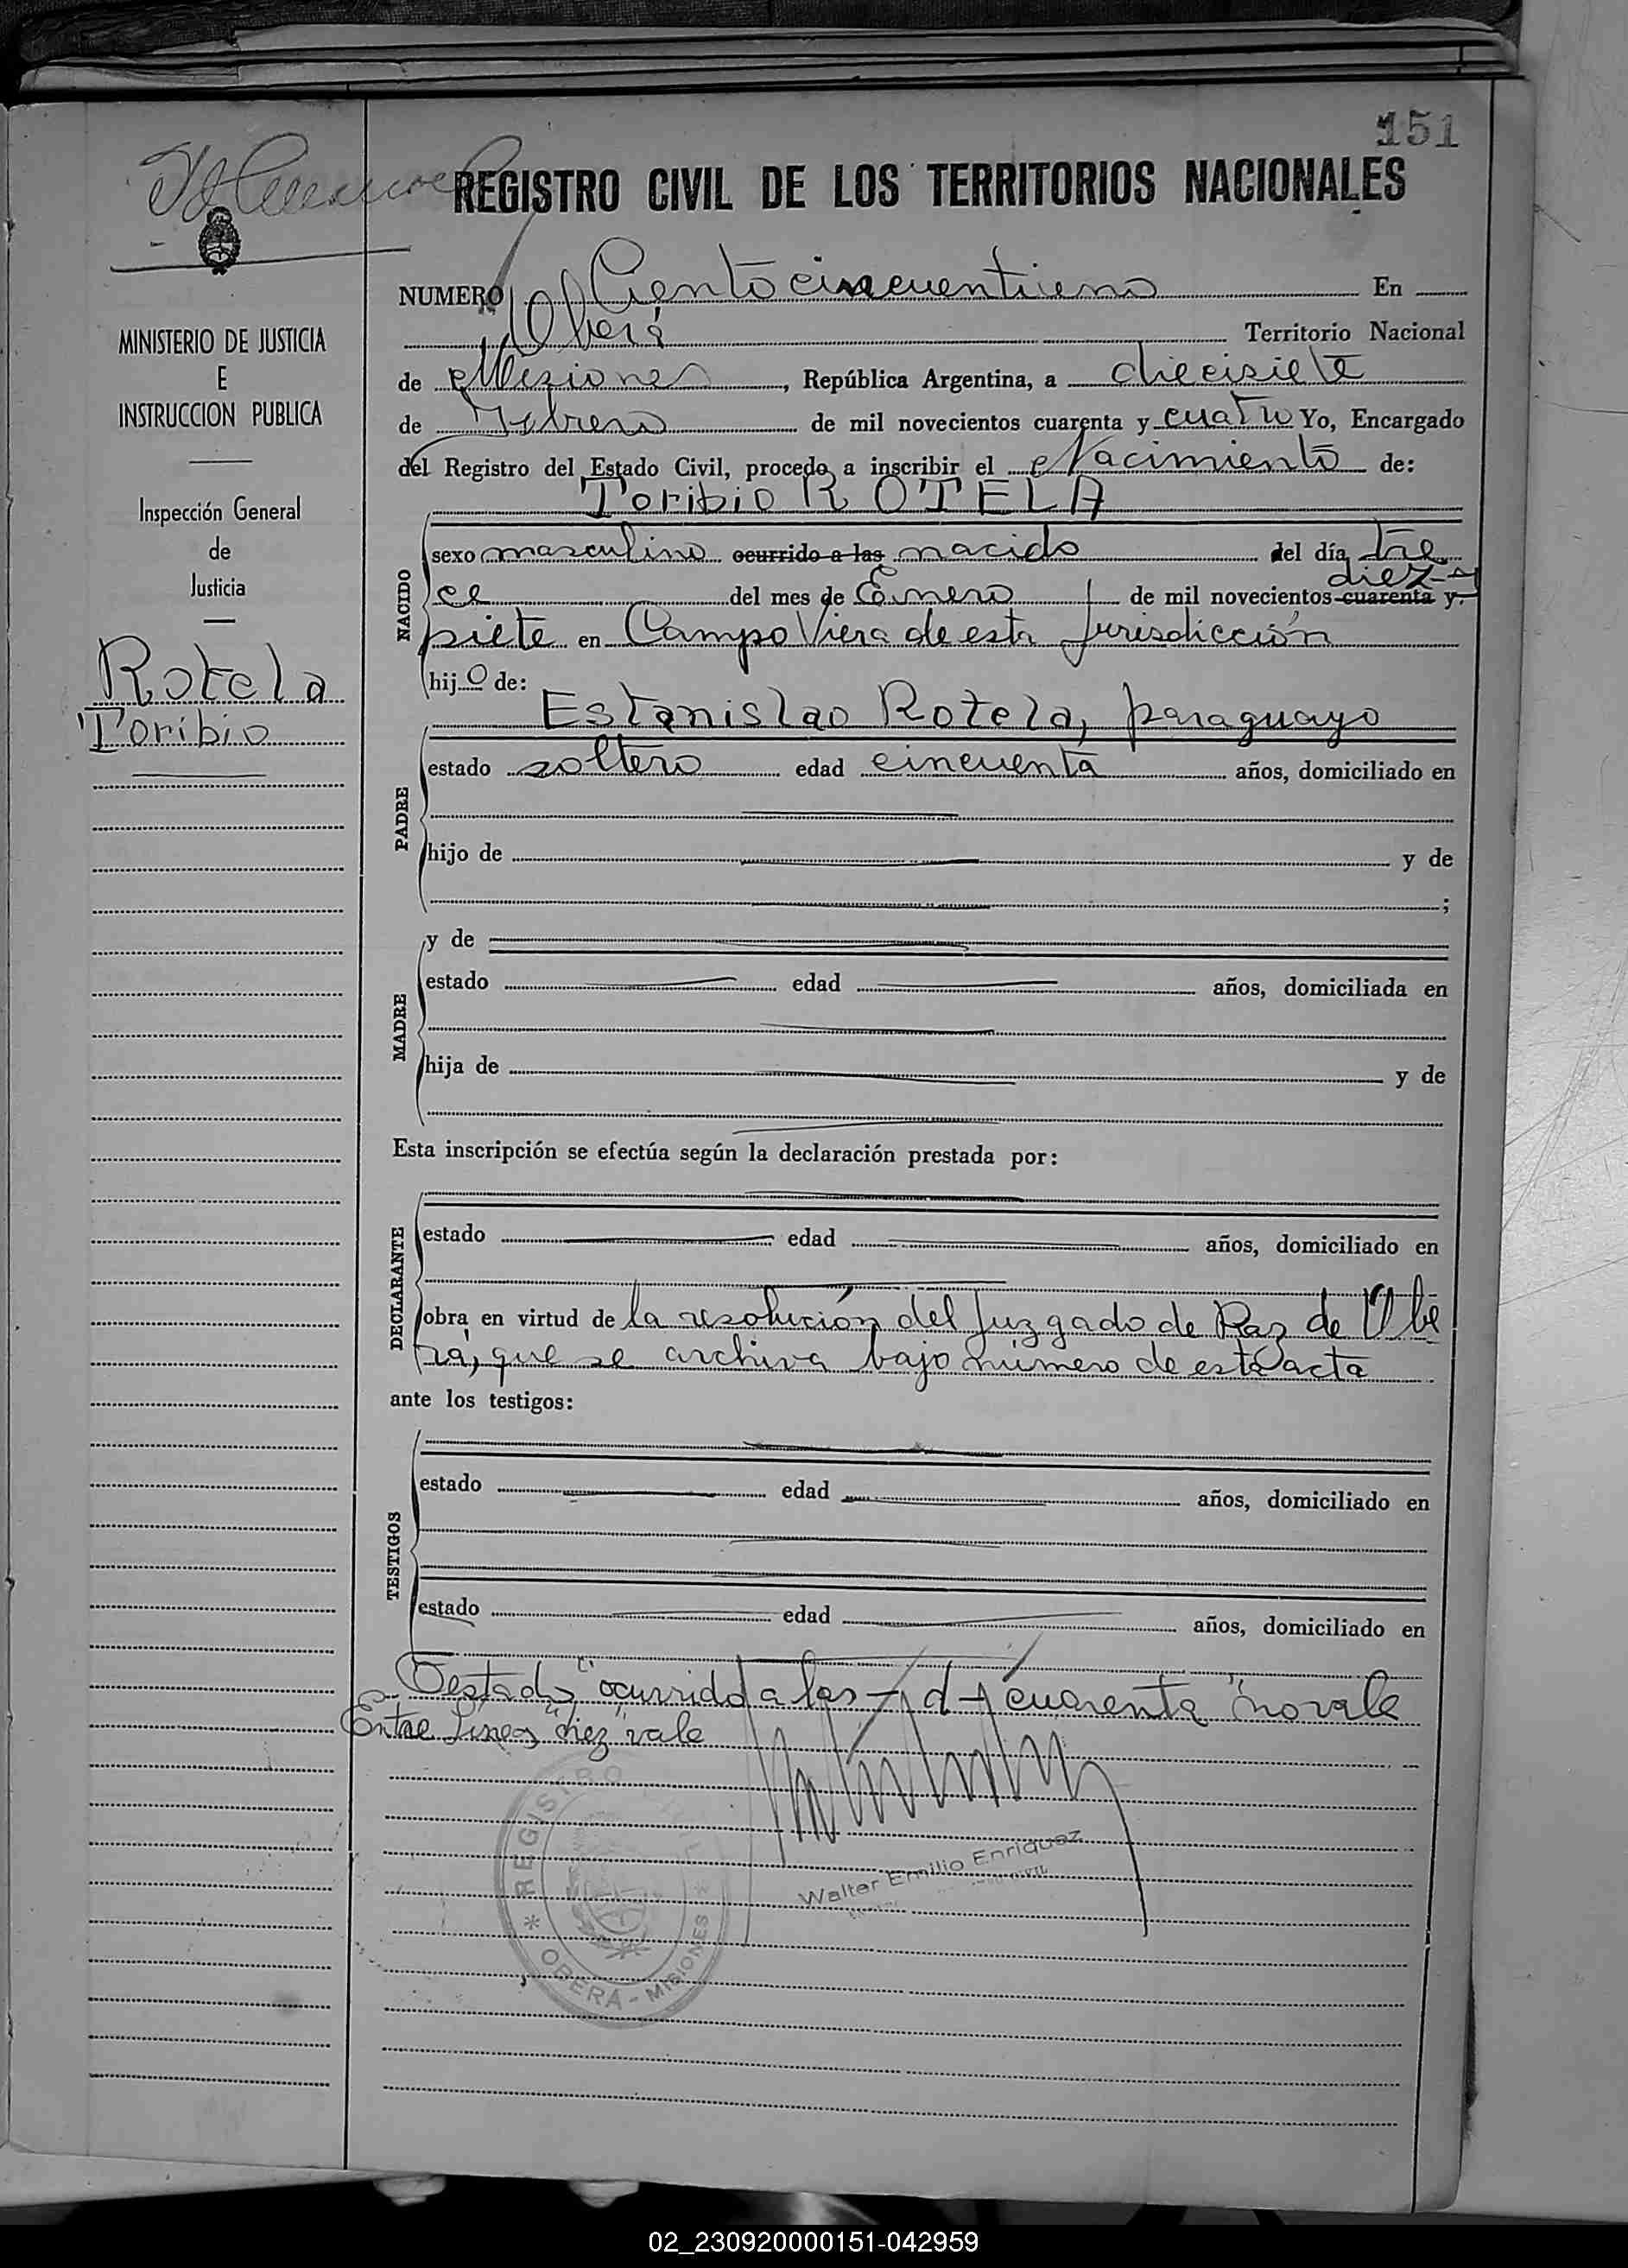 151
REGISTRO CIVIL DE LOS TERRITORIOS NACIONALES
NUMERO Ciento cincuentiuno En
Oberá Territorio Nacional
de Misiones, República Argentina, a diecisiete
de Febrero de mil novecientos cuarenta y cuatro Yo, Encargado
del Registro del Estado Civil, procedo a inscribir el Nacimiento de:
Toribio ROTELA
NACIDO
sexo masculino ocurrido a las nacido del día tre
diez y
ce del mes de Enero de mil novecientos cuarenta y
siete en Campo Viera de esta Jurisdicción
hijo de:
Estanislao Rotela, paraguayo
PADRE
estado soltero edad cincuenta años, domiciliado en
hijo de y de
;
MADRE
y de
estado edad años, domiciliada en
hija de y de
Esta inscripción se efectúa según la declaración prestada por:
DECLARANTE
estado edad años, domiciliado en
obra en virtud de la resolución del Juzgado de Paz de Obe
rá, que se archiva bajo número de esta acta
ante los testigos:
TESTIGOS
estado edad años, domiciliado en
estado edad años, domiciliado en
Testado "ocurrido a las - y d - y cuarenta" no vale
Entre lineas "diez" vale
Walter Emilio Enriquez
REGISTRO CIVIL
* OBERA - MISIONES *
MINISTERIO DE JUSTICIA
E
INSTRUCCION PUBLICA
Inspección General
de
Justicia
Rotela
Toribio
02_230920000151-042959